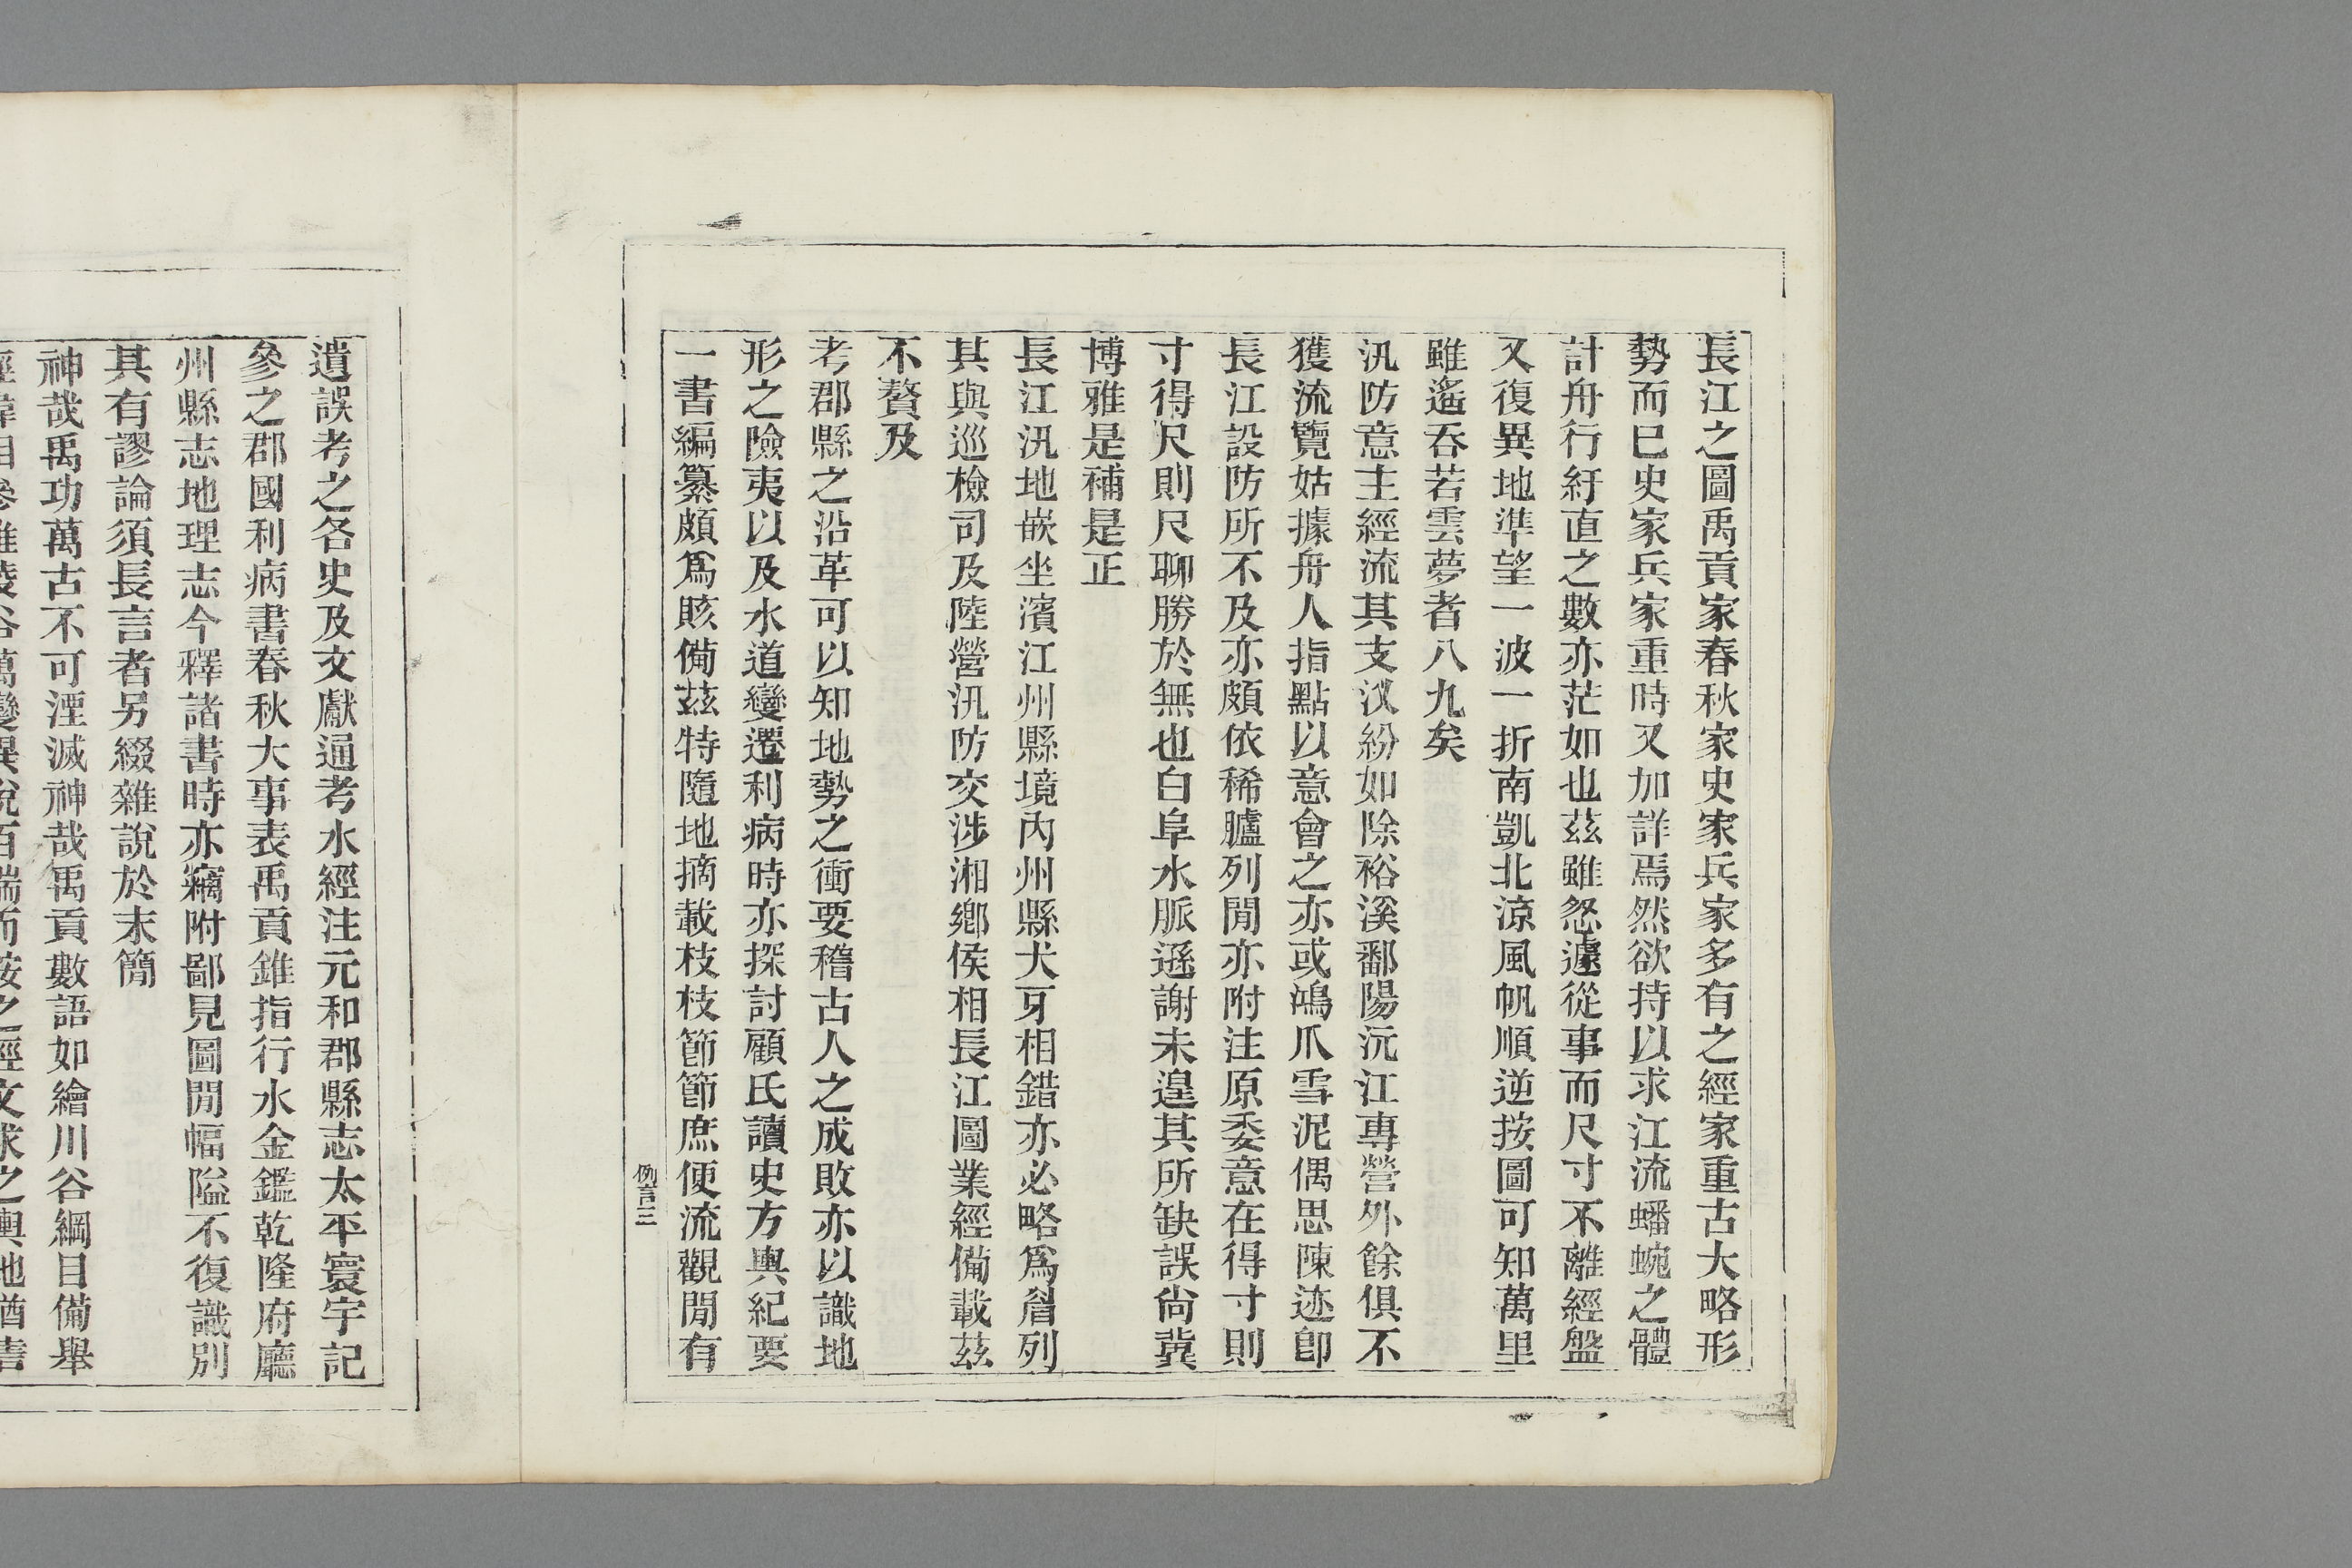 長江之圖禹貢家春秋家史家兵家多有之經家重古大略形
勢而已史家兵家重時又加詳焉然欲持以求江流蟠蜿之體
計舟行紆直之數亦茫如也茲雖怱遽從事而尺寸不離經盤
又復異地準望一波一折南凱北涼風帆順逆按圖可知萬里
雖遙吞若雲夢者八九矣
汛防意主經流其支汊紛如除裕溪鄱陽沅江專營外餘俱不
獲流覽姑據舟人指點以意會之亦或鴻爪雪泥偶思陳迹卽
長江設防所不及亦頗依稀臚列閒亦附注原委意在得寸則
寸得尺則尺聊勝於無也白阜水脈遜謝未遑其所缺誤尙冀
博雅是補是正
長江汛地嵌坐濱江州縣境內州縣犬牙相錯亦必略爲眉列
其與巡檢司及陸營汛防交涉湘鄕侯相長江圖業經備載茲
不贅及
考郡縣之沿革可以知地勢之衝要稽古人之成敗亦以識地
形之險夷以及水道變遷利病時亦探討顧氏讀史方輿紀要
一書編纂頗爲賅備茲特隨地摘載枝枝節節庶便流觀閒有
例言三
遺誤考之各史及文獻通考水經注元和郡縣志太平寰宇記
參之郡國利病書春秋大事表禹貢錐指行水金鑑乾隆府廳
州縣志地理志今釋諸書時亦竊附鄙見圖閒幅隘不復識別
其有謬論須長言者另綴雜說於末簡
神哉禹功萬古不可湮滅神哉禹貢數語如繪川谷綱目備舉